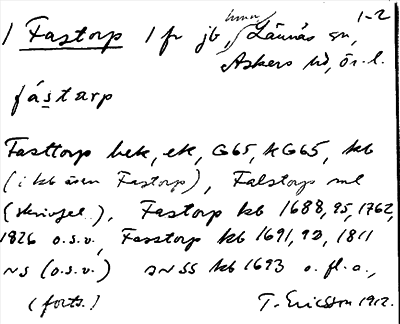 1-2
1 Fastorp 1 fr jb Lännäs sn,
Askers hd, Ör. l.
fástarp
Fasttorp bek, ek, G65, KG65, kb
(i kb även Fastorp), Falstorp ml
(skrivfel.), Fastorp kb 1688, 95, 1762,
1826 o.s.v., Fasstorp kb 1691, 92, 1811
~s (o.s.v.) ~ss kb 1693 o. fl. a.,
(forts.) T. Ericsson 1912.